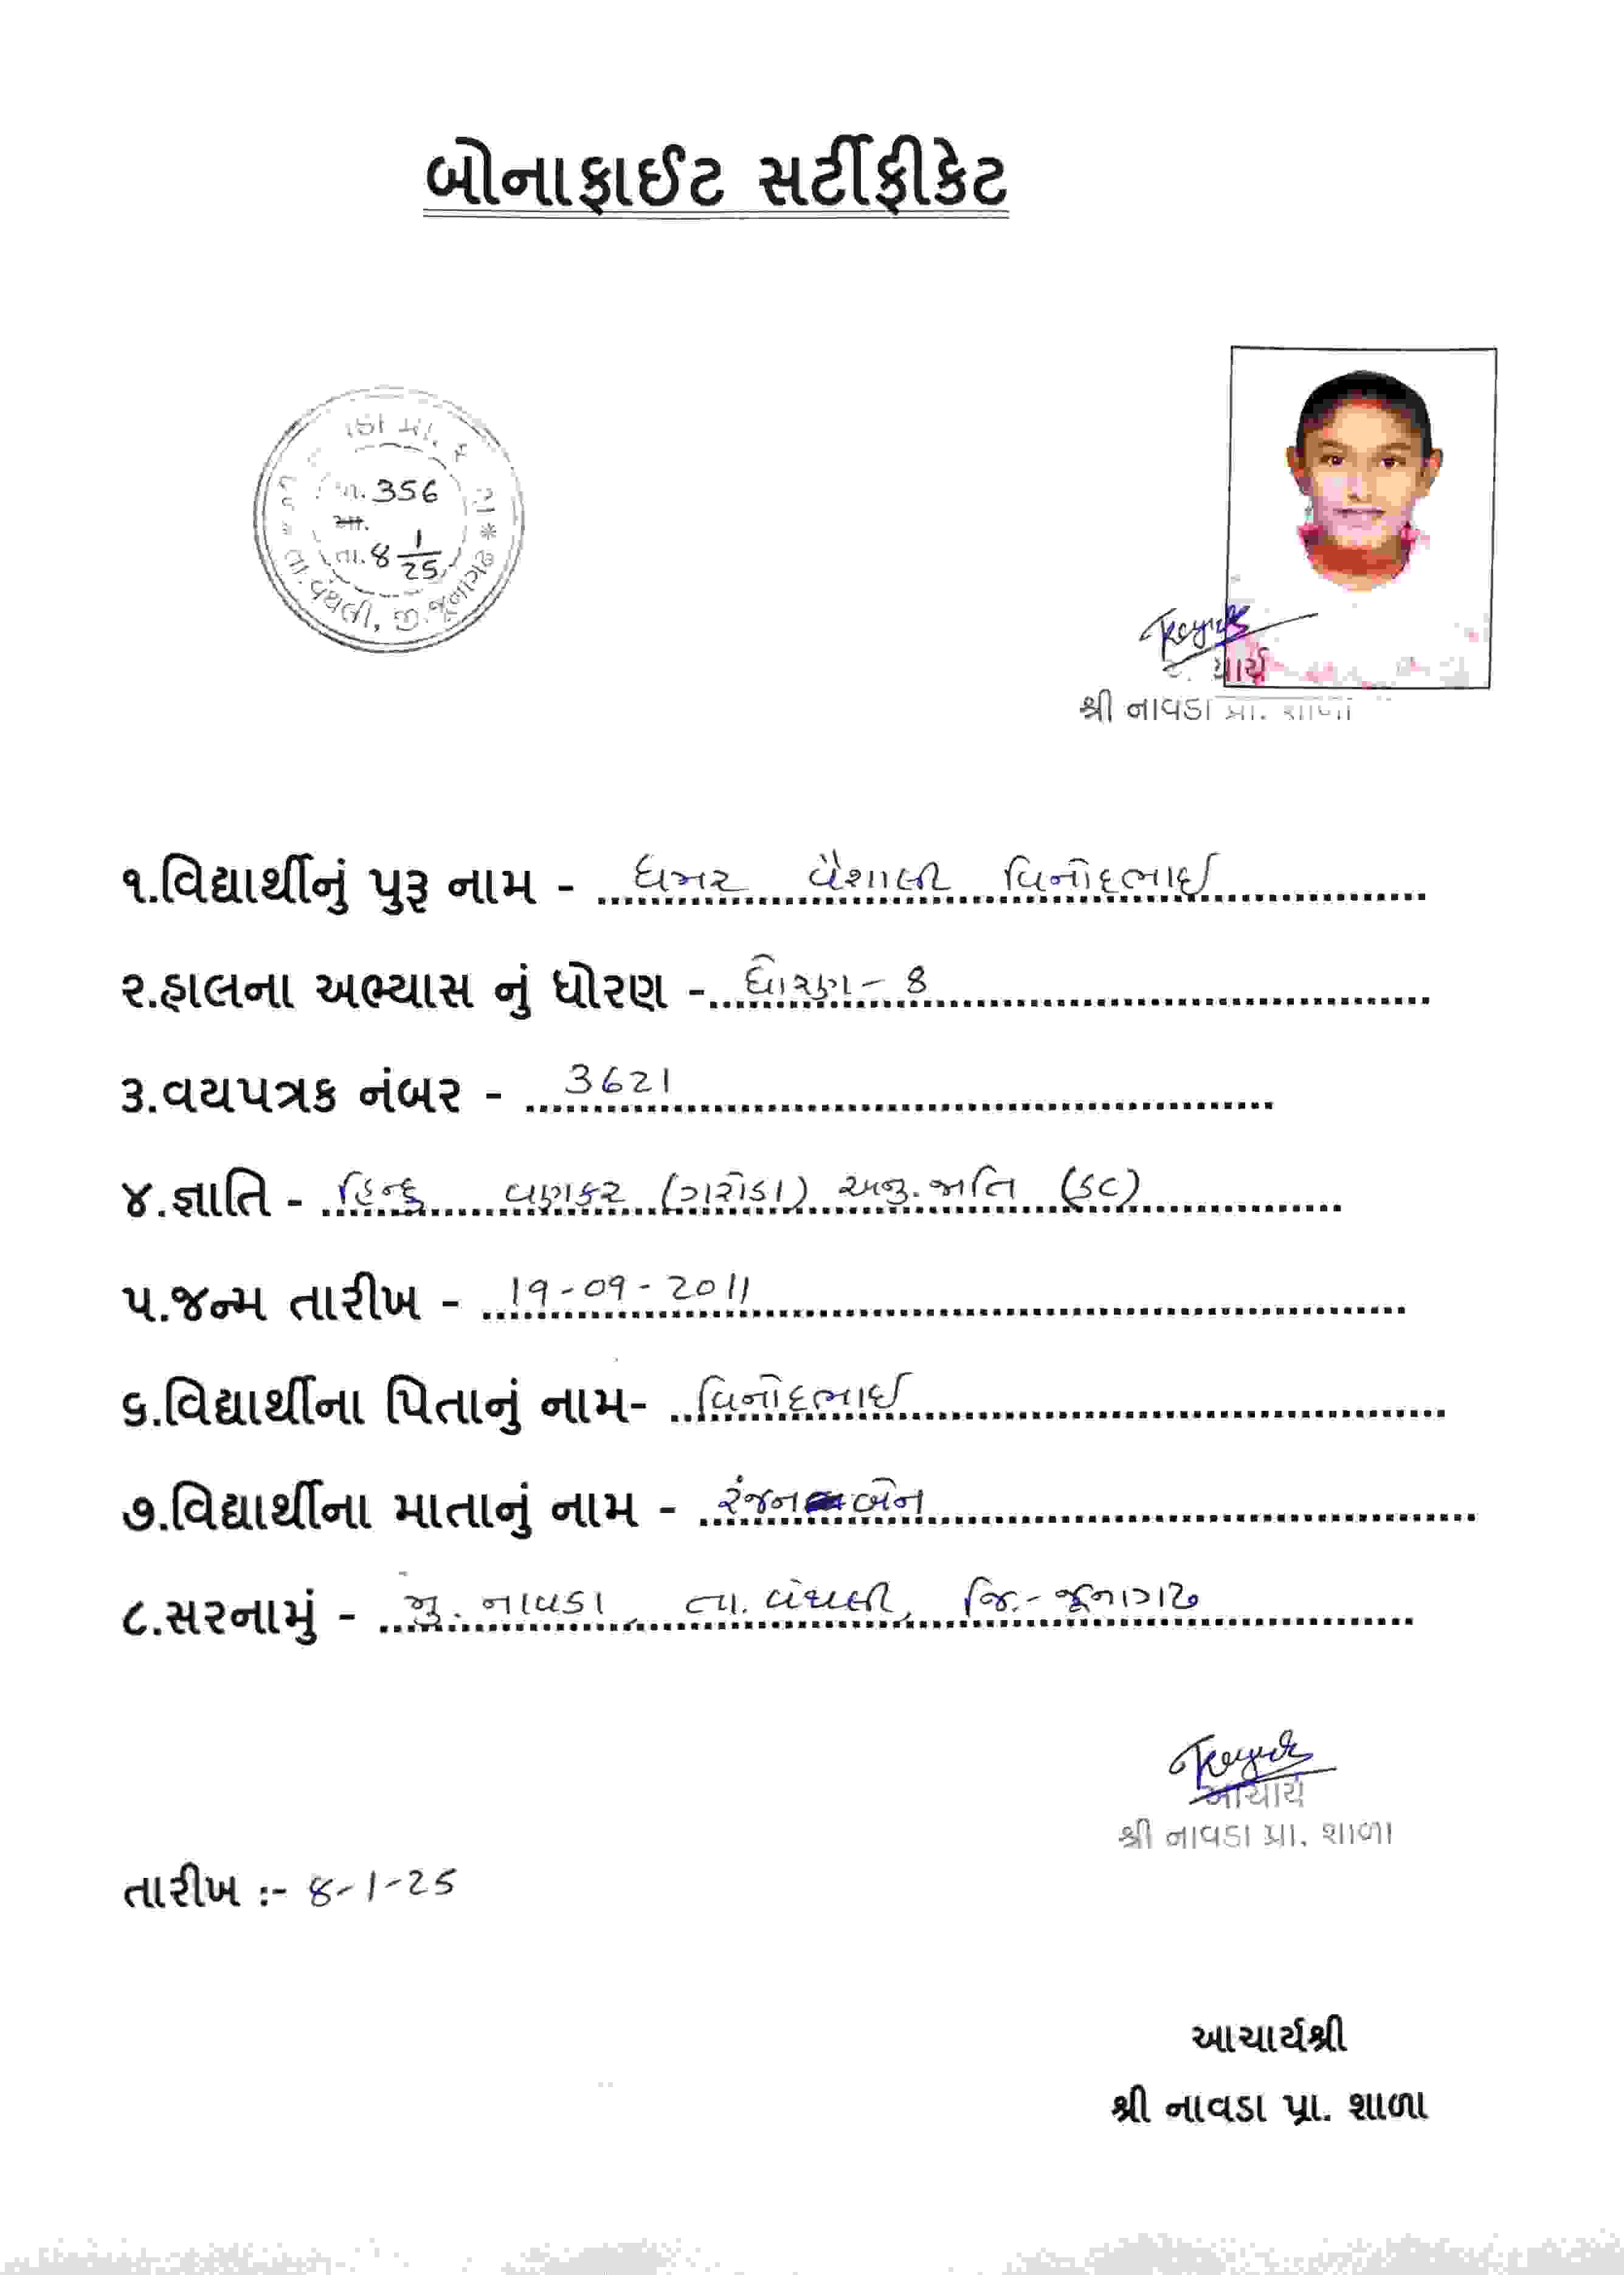 બોનાફાઈટ સર્ટીફીકેટ
356
તા. 8 1/25
તા.વંથલી, જી.જૂનાગઢ
શ્રી નાવડા પ્રા. શાળા
૧.વિદ્યાર્થીનું પુરૂ નામ - ધમર વૈશાલી વિનોદભાઈ
૨.હાલના અભ્યાસ નું ધોરણ - ધોરણ - 8
૩.વયપત્રક નંબર - 3621
૪.જ્ઞાતિ - હિન્દુ વણકર (ગરોડા) અનુ.જાતિ (SC)
૫.જન્મ તારીખ - 19-09-2011
૬.વિદ્યાર્થીના પિતાનું નામ- વિનોદભાઈ
૭.વિદ્યાર્થીના માતાનું નામ - રંજનબેન
૮.સરનામું - મુ. નાવડા, તા. વંથલી, જિ.- જૂનાગઢ
આચાર્ય
શ્રી નાવડા પ્રા. શાળા
તારીખ :- 8-1-25
આચાર્યશ્રી
શ્રી નાવડા પ્રા. શાળા